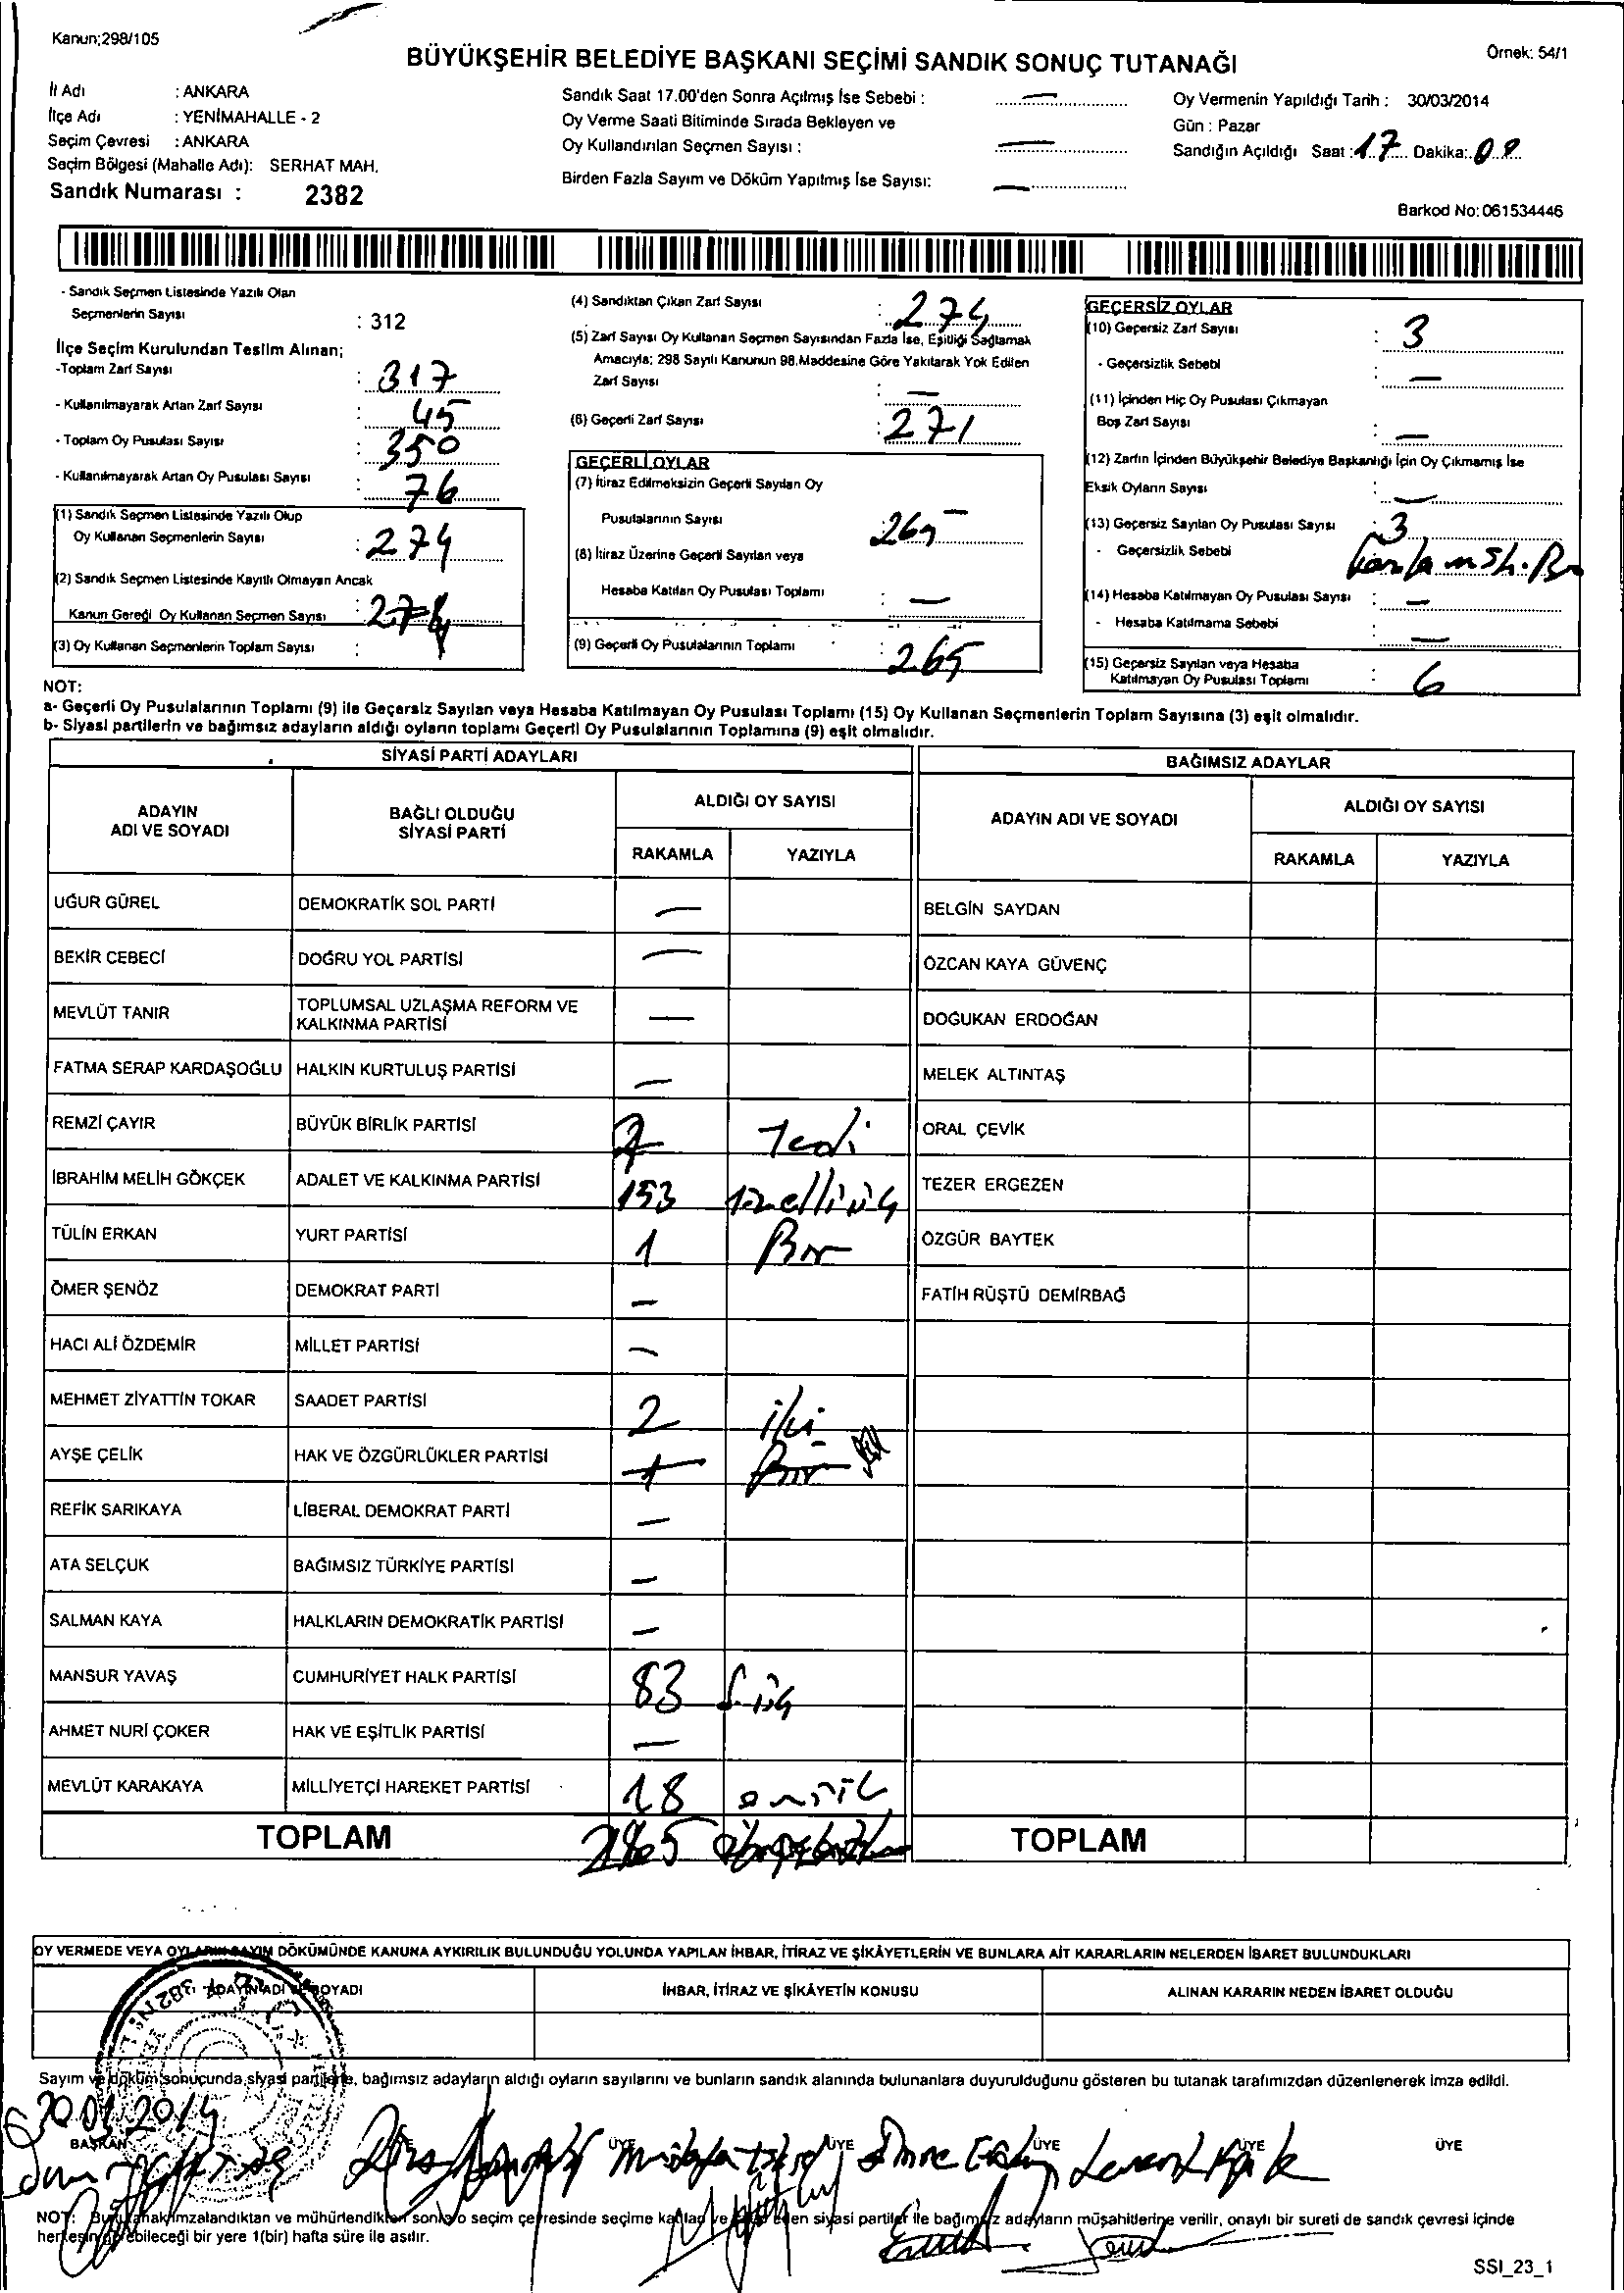 Kanun;298/105
BÜYÜKŞEHİR BELEDİYE BAŞKANI SEÇİMİ SANDIK SONUÇ TUTANAĞI
Örnek: 54/1
İl Adı : ANKARA
İlçe Adı : YENİMAHALLE - 2
Seçim Çevresi : ANKARA
Seçim Bölgesi (Mahalle Adı): SERHAT MAH.
Sandık Numarası : 2382
Sandık Saat 17.00'den Sonra Açılmış İse Sebebi : —
Oy Verme Saati Bitiminde Sırada Bekleyen ve
Oy Kullandırılan Seçmen Sayısı : —
Birden Fazla Sayım ve Döküm Yapılmış İse Sayısı: —
Oy Vermenin Yapıldığı Tarih : 30/03/2014
Gün : Pazar
Sandığın Açıldığı Saat : 17 Dakika:
Barkod No: 061534446
- Sandık Seçmen Listesinde Yazılı Olan
Seçmenlerin Sayısı : 312
İlçe Seçim Kurulundan Teslim Alınan;
-Toplam Zarf Sayısı : 317
- Kullanılmayarak Artan Zarf Sayısı : 45
- Toplam Oy Pusulası Sayısı : 350
- Kullanılmayarak Artan Oy Pusulası Sayısı : 76
(1) Sandık Seçmen Listesinde Yazılı Olup
Oy Kullanan Seçmenlerin Sayısı : 274
(2) Sandık Seçmen Listesinde Kayıtlı Olmayan Ancak
Kanun Gereği Oy Kullanan Seçmen Sayısı : 274
(3) Oy Kullanan Seçmenlerin Toplam Sayısı :
(4) Sandıktan Çıkan Zarf Sayısı : 274
(5) Zarf Sayısı Oy Kullanan Seçmen Sayısından Fazla İse, Eşitliği Sağlamak
Amacıyla; 298 Sayılı Kanunun 98.Maddesine Göre Yakılarak Yok Edilen
Zarf Sayısı : —
(6) Geçerli Zarf Sayısı : 271
GEÇERLİ OYLAR
(7) İtiraz Edilmeksizin Geçerli Sayılan Oy
Pusulalarının Sayısı 265
(8) İtiraz Üzerine Geçerli Sayılan veya
Hesaba Katılan Oy Pusulası Toplamı : —
(9) Geçerli Oy Pusulalarının Toplamı : 265
GEÇERSİZ OYLAR
(10) Geçersiz Zarf Sayısı : 3
- Geçersizlik Sebebi : —
(11) İçinden Hiç Oy Pusulası Çıkmayan
Boş Zarf Sayısı : —
(12) Zarfın İçinden Büyükşehir Belediye Başkanlığı İçin Oy Çıkmamış İse
Eksik Oyların Sayısı : —
(13) Geçersiz Sayılan Oy Pusulası Sayısı : 3
- Geçersizlik Sebebi
(14) Hesaba Katılmayan Oy Pusulası Sayısı : —
- Hesaba Katılmama Sebebi : —
(15) Geçersiz Sayılan veya Hesaba
Katılmayan Oy Pusulası Toplamı : 6
NOT:
a- Geçerli Oy Pusulalarının Toplamı (9) ile Geçersiz Sayılan veya Hesaba Katılmayan Oy Pusulası Toplamı (15) Oy Kullanan Seçmenlerin Toplam Sayısına (3) eşit olmalıdır.
b- Siyasi partilerin ve bağımsız adayların aldığı oyların toplamı Geçerli Oy Pusulalarının Toplamına (9) eşit olmalıdır.
SİYASİ PARTİ ADAYLARI
BAĞIMSIZ ADAYLAR
ADAYIN
ADI VE SOYADI
BAĞLI OLDUĞU
SİYASİ PARTİ
ALDIĞI OY SAYISI
RAKAMLA YAZIYLA
ADAYIN ADI VE SOYADI
ALDIĞI OY SAYISI
RAKAMLA YAZIYLA
UĞUR GÜREL DEMOKRATİK SOL PARTİ — BELGİN SAYDAN
BEKİR CEBECİ DOĞRU YOL PARTİSİ — ÖZCAN KAYA GÜVENÇ
MEVLÜT TANIR TOPLUMSAL UZLAŞMA REFORM VE
KALKINMA PARTİSİ — DOĞUKAN ERDOĞAN
FATMA SERAP KARDAŞOĞLU HALKIN KURTULUŞ PARTİSİ — MELEK ALTINTAŞ
REMZİ ÇAYIR BÜYÜK BİRLİK PARTİSİ 7 Yedi ORAL ÇEVİK
İBRAHİM MELİH GÖKÇEK ADALET VE KALKINMA PARTİSİ 153 yüzelliüç TEZER ERGEZEN
TÜLİN ERKAN YURT PARTİSİ 1 Bir ÖZGÜR BAYTEK
ÖMER ŞENÖZ DEMOKRAT PARTİ — FATİH RÜŞTÜ DEMİRBAĞ
HACI ALİ ÖZDEMİR MİLLET PARTİSİ —
MEHMET ZİYATTİN TOKAR SAADET PARTİSİ 2 iki
AYŞE ÇELİK HAK VE ÖZGÜRLÜKLER PARTİSİ 1 Bir
REFİK SARIKAYA LİBERAL DEMOKRAT PARTİ —
ATA SELÇUK BAĞIMSIZ TÜRKİYE PARTİSİ —
SALMAN KAYA HALKLARIN DEMOKRATİK PARTİSİ —
MANSUR YAVAŞ CUMHURİYET HALK PARTİSİ 83
AHMET NURİ ÇOKER HAK VE EŞİTLİK PARTİSİ —
MEVLÜT KARAKAYA MİLLİYETÇİ HAREKET PARTİSİ 18
TOPLAM TOPLAM
OY VERMEDE VEYA OYLARIN SAYIM DÖKÜMÜNDE KANUNA AYKIRILIK BULUNDUĞU YOLUNDA YAPILAN İHBAR, İTİRAZ VE ŞİKÂYETLERİN VE BUNLARA AİT KARARLARIN NELERDEN İBARET BULUNDUKLARI
ADAYIN ADI VE SOYADI İHBAR, İTİRAZ VE ŞİKÂYETİN KONUSU ALINAN KARARIN NEDEN İBARET OLDUĞU
Sayım ve döküm sonucunda siyasi partilerle, bağımsız adayların aldığı oyların sayılarını ve bunların sandık alanında bulunanlara duyurulduğunu gösteren bu tutanak tarafımızdan düzenlenerek imza edildi.
BAŞKAN ÜYE ÜYE ÜYE ÜYE ÜYE
NOT: Bu tutanak imzalandıktan ve mühürlendikten sonra o seçim çevresinde seçime katılan ve eden siyasi partiler ile bağımsız adayların müşahitlerine verilir, onaylı bir sureti de sandık çevresi içinde
herkesin görebileceği bir yere 1(bir) hafta süre ile asılır.
SSI_23_1